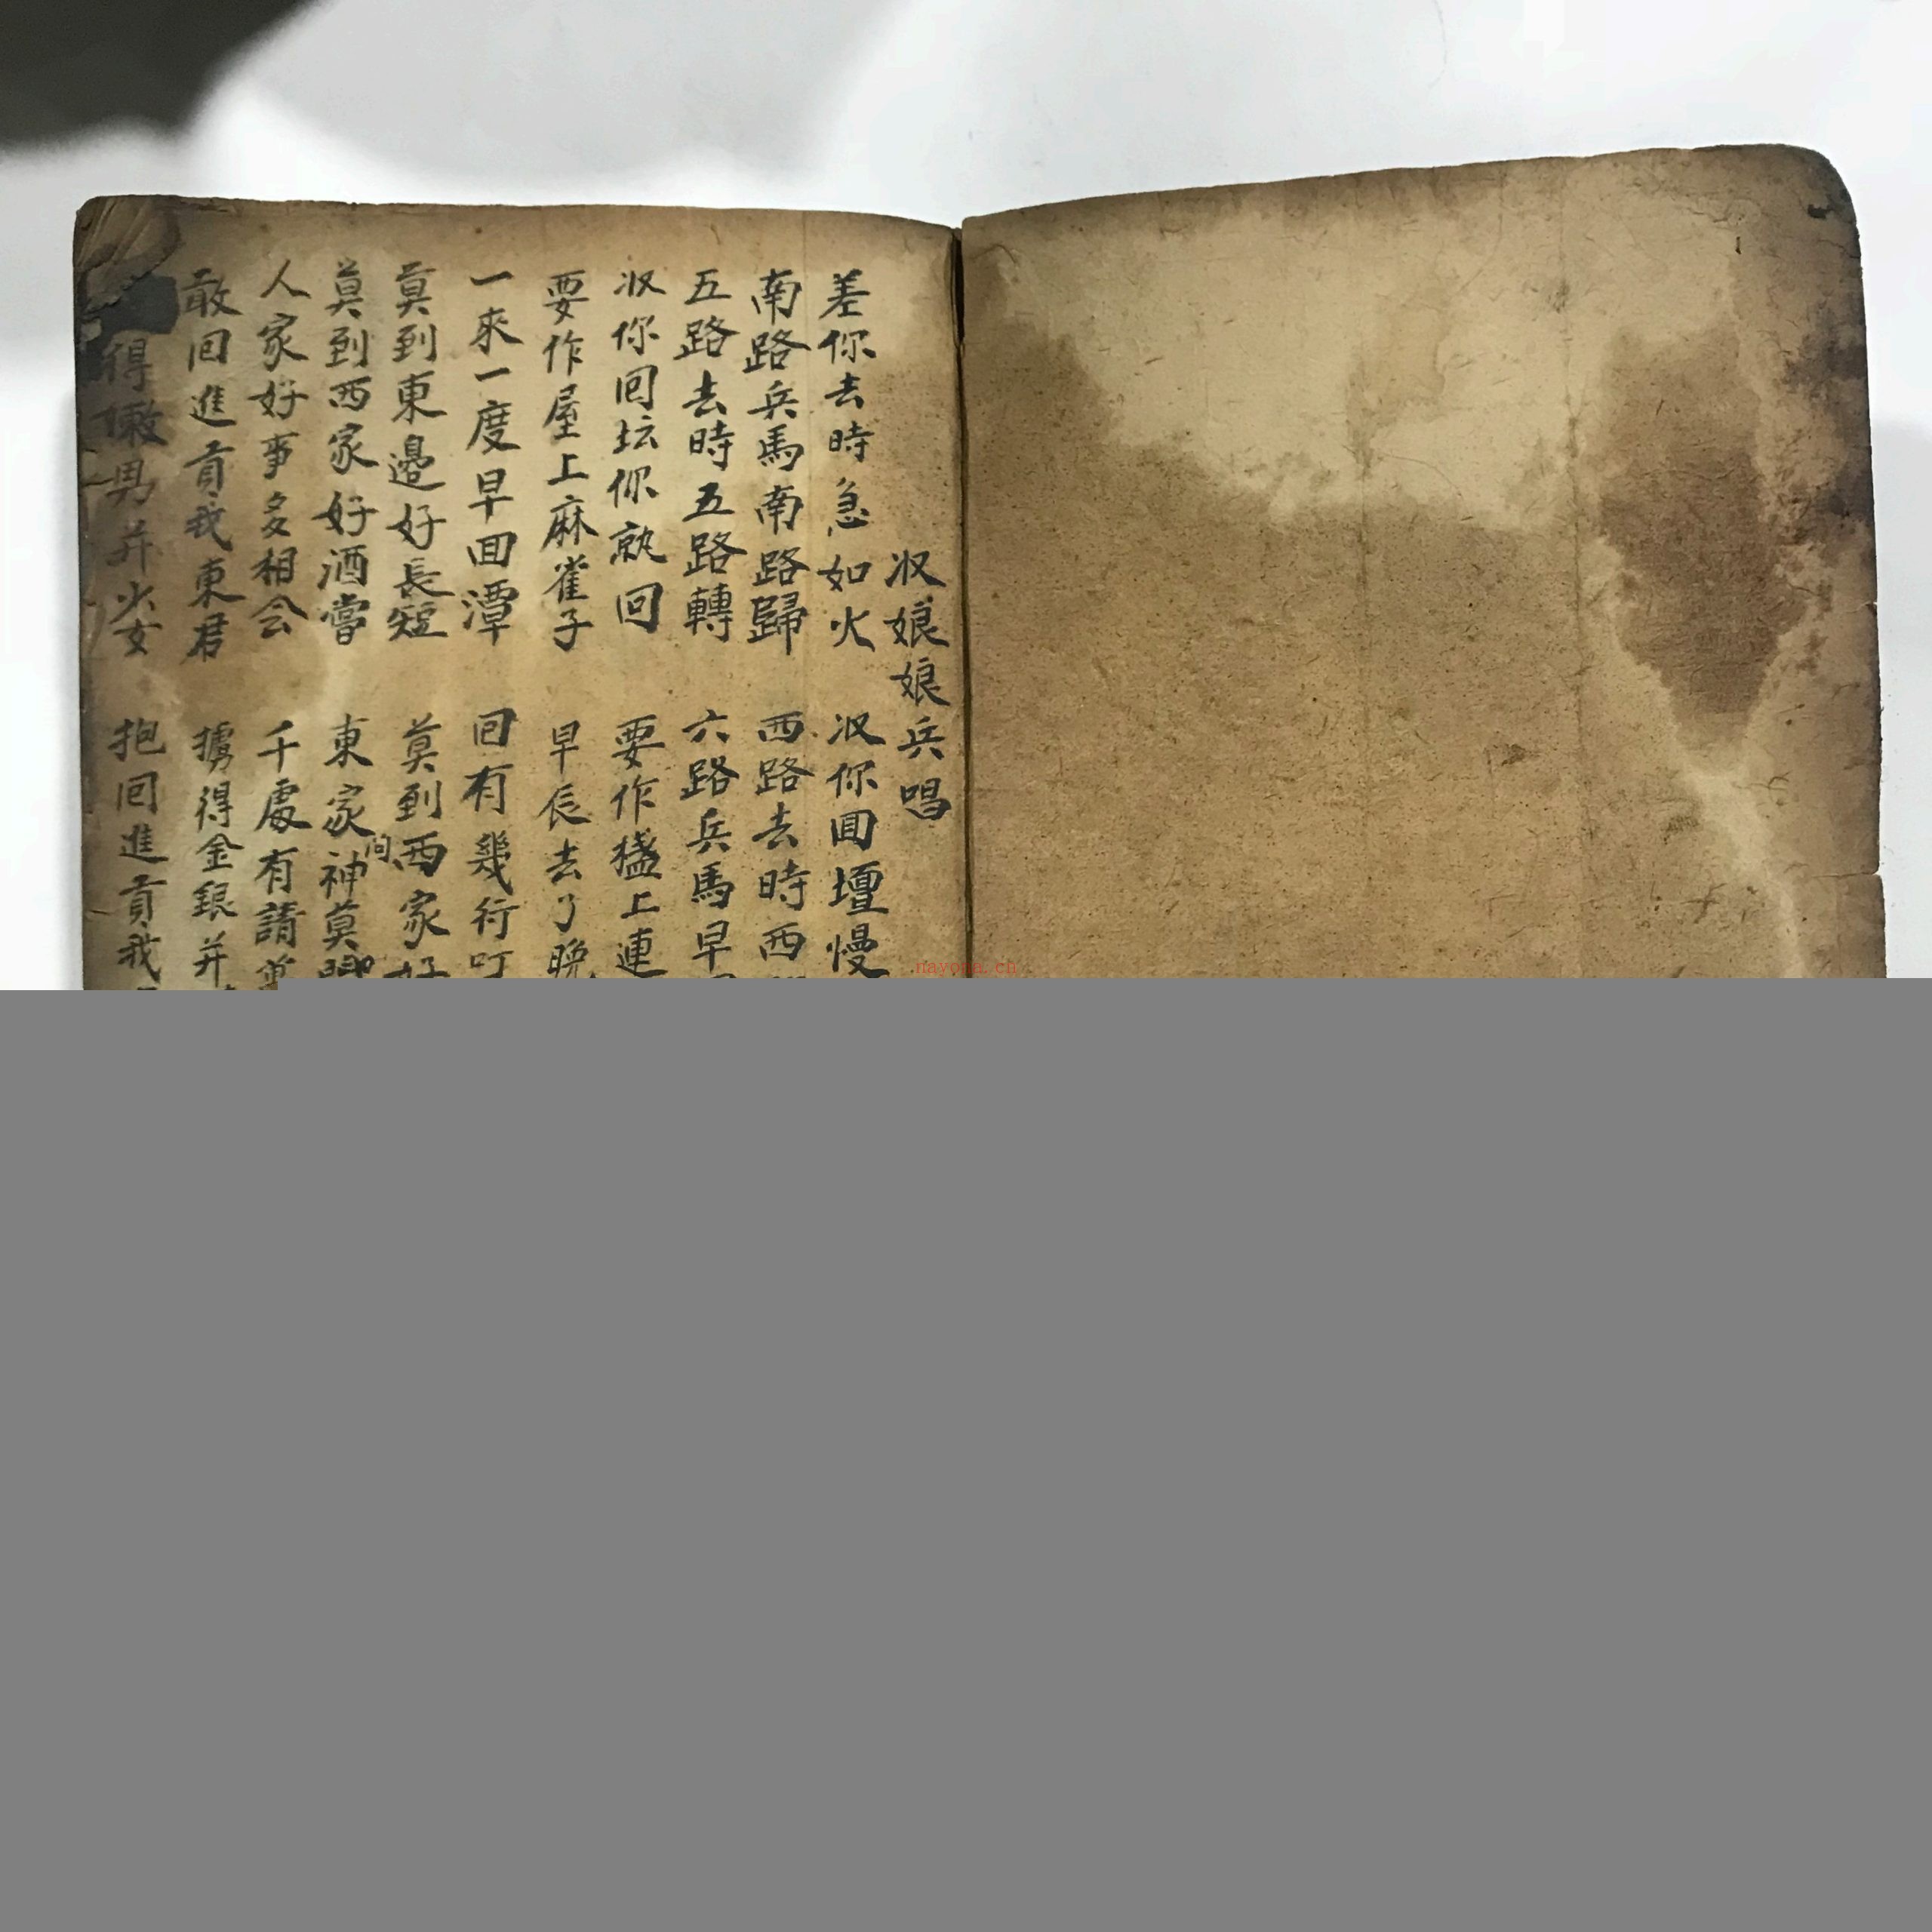 収娘娘兵唱
差你去時急如火 収你囬壇慢
南路兵馬南路歸 西路去時西
五路去時五路轉 六路兵馬早
収你回坛你就回 要作 上連
要作屋上麻雀子 早辰去了晚
一來一度早囬潭 囬有幾行叮
莫到東邊好長短 莫到西家好
莫到西家好酒嘗 東家神莫
問
人家好事多相会 千處有請萬
敢囬進貢我東君 擄得金銀并
得 男并火女 抱囬進貢我
nayona.cn